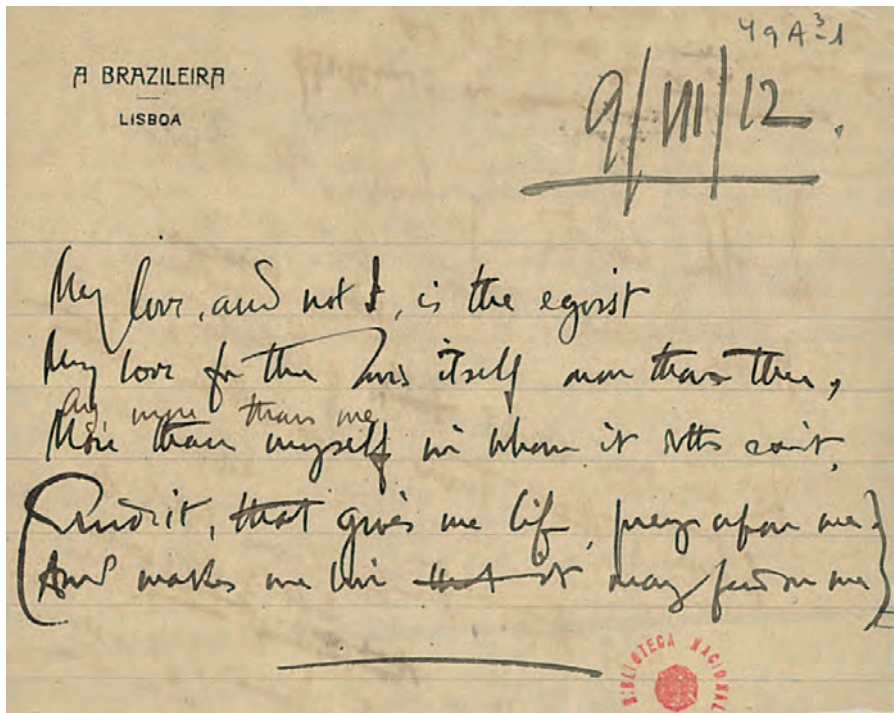 49A³-1
A BRAZILEIRA
LISBOA
9/VIII/12.
My love, and not I, is the egoist
My love for thee loves itself more than thee,
Ay more than me
More than myself in whom it doth exist,
And it, that gives me life, preys upon me.
And makes me live that it may feed on me
BIBLIOTECA NACIONAL